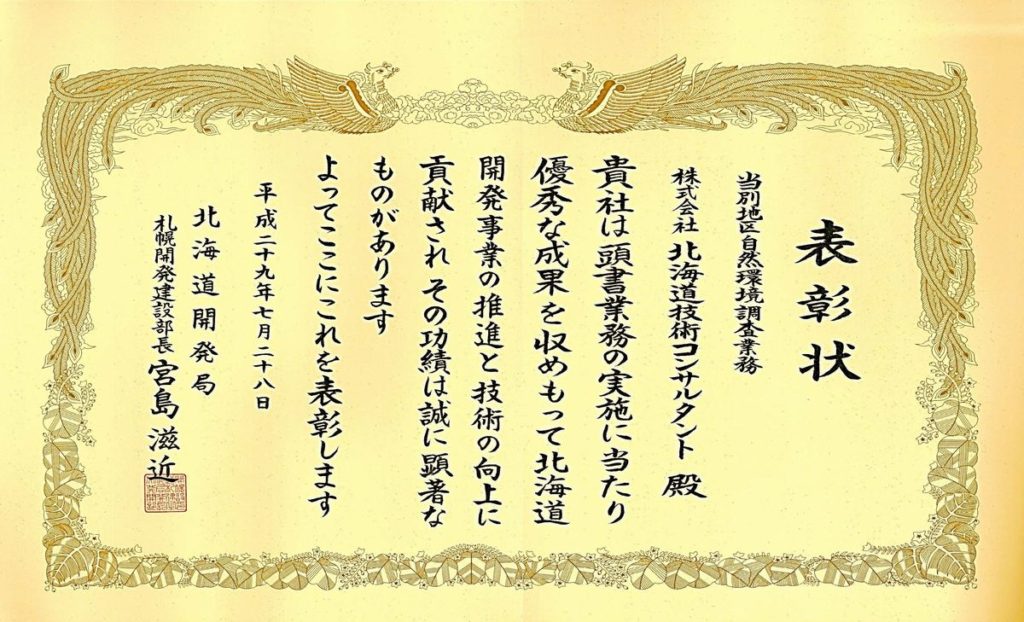 表彰状
当別地区自然環境調査業務
株式会社 北海道技術コンサルタント 殿
貴社は頭書業務の実施に当たり
優秀な成果を収めもって北海道
開発事業の推進と技術の向上に
貢献され その功績は誠に顕著な
ものがあります
よってここにこれを表彰します
平成二十九年七月二十八日
北海道開発局
札幌開発建設部長 宮島 滋近